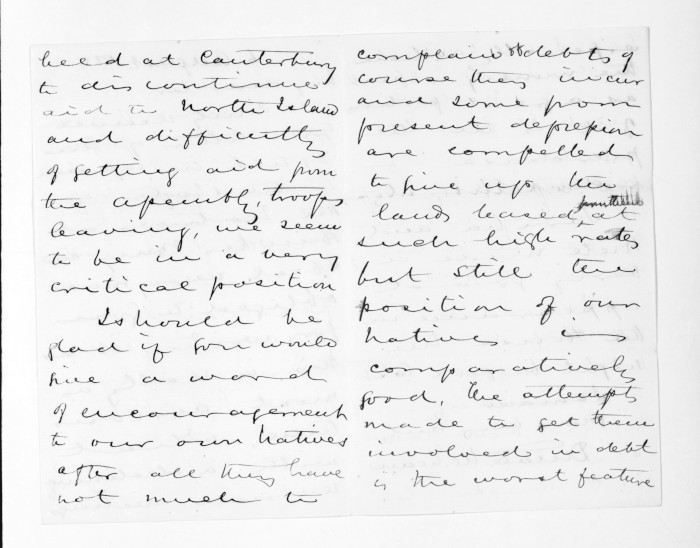 held at Canterbury
to discontinue
aid to North Island
and difficulty
of getting aid from
the assembly, troops
leaving, we seem
to be in a very
critical position
I should be
glad if you would
give a word
of encouragement
to our own natives
after all they have
not much to
complain of debts of
course they incur
and some from
present depression
are compelled
to give up the
lands leased at
such high rates
but still the
position of our
natives is
comparatively
good. The attempts
made to get them
involved in debt
is the worst feature